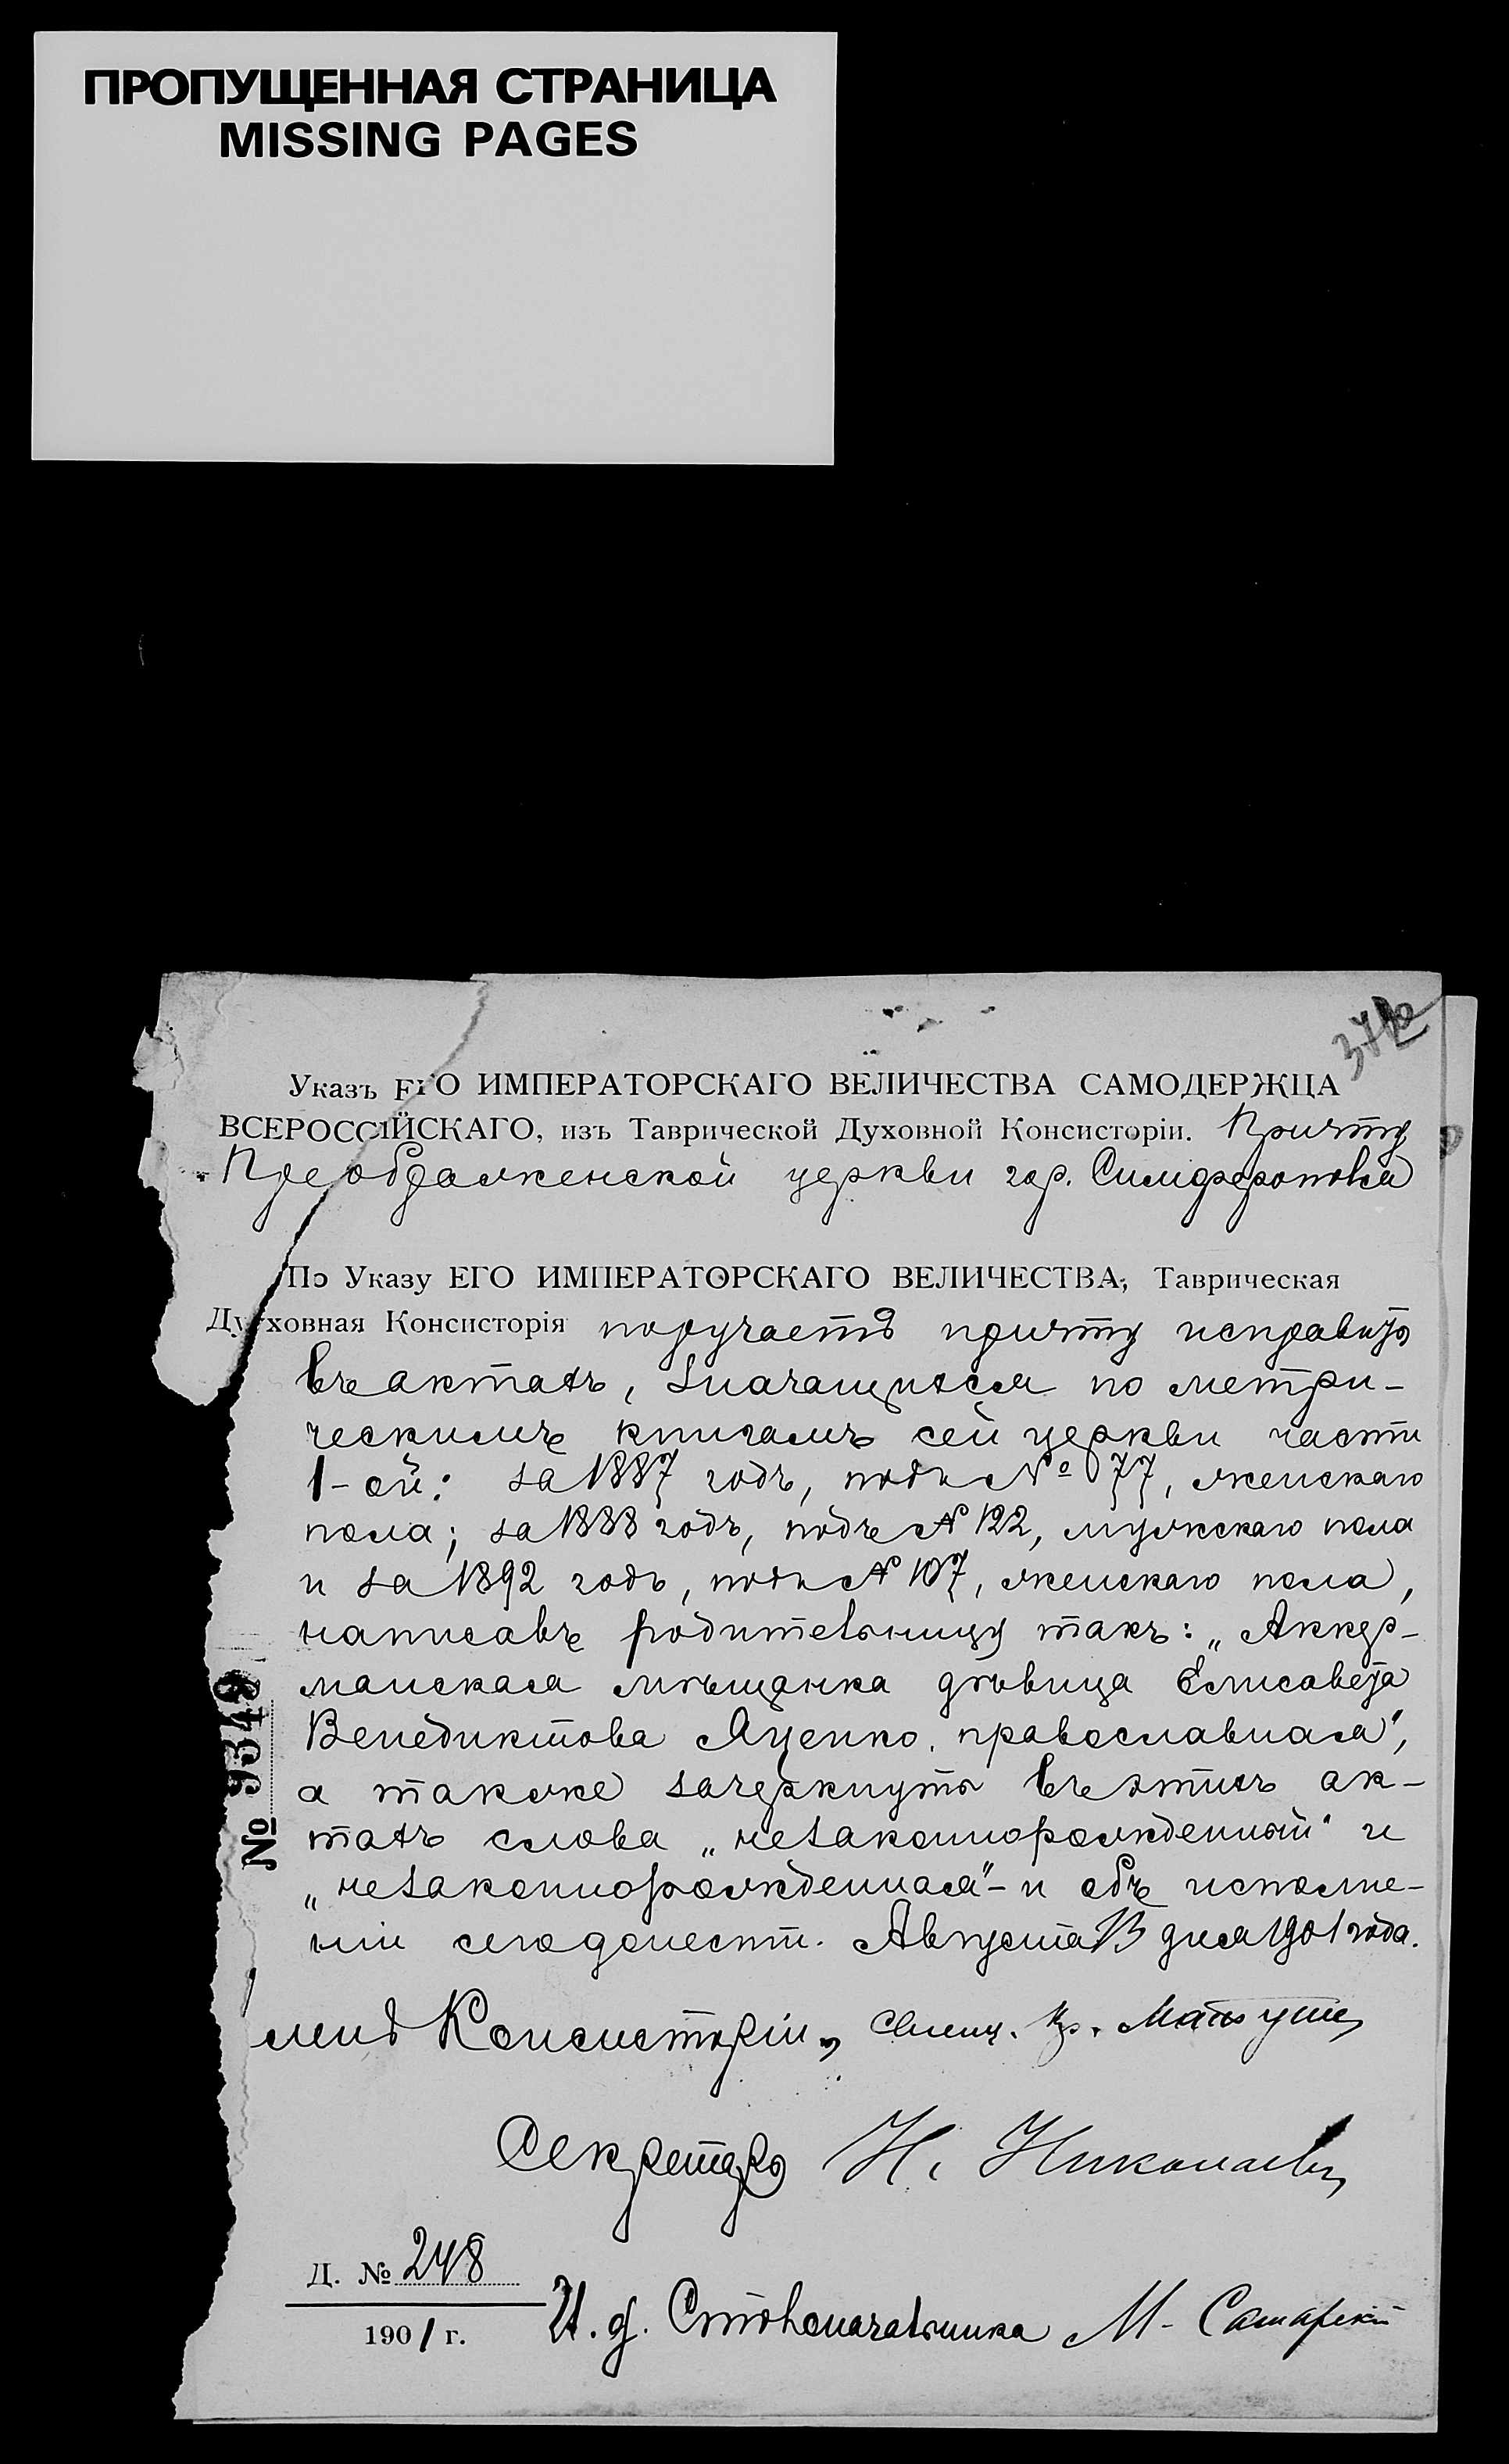 ПРОПУЩЕННАЯ СТРАНИЦА
MISSING PAGES
Указъ ЕГО ИМПЕРАТОРСКАГО ВЕЛИЧЕСТВА САМОДЕРЖЦА
ВСЕРОССІЙСКАГО, изъ Таврической Духовной Консисторіи. Причту
Преображенской церкви гор. Симферополя
По Указу ЕГО ИМПЕРАТОРСКАГО ВЕЛИЧЕСТВА, Таврическая
Духовная Консисторія поручаетъ причту исправить
въ актахъ, значащихся по метри-
ческимъ книгамъ сей церкви части
1-ой: за 1887 годъ, подъ № 77, женскаго
пола; за 1888 годъ, подъ № 122, мужскаго пола
и за 1892 годъ, подъ № 107, женскаго пола,
написавъ родительницу такъ: „Аккер-
манская мѣщанка дѣвица Елисавета
Венедиктова Яценко, православная",
а также зачеркнуть въ этихъ ак-
тахъ слова „незаконнорожденный" и
„незаконнорожденная" - и объ исполне-
ніи сего донести. Августа 13 дня 1901 года.
№ 9349
Консисторіи, Свящ.
Секретарь Н. Николаевъ
Д. № 248
1901 г.
И. д. Столоначальника М. Самарскій